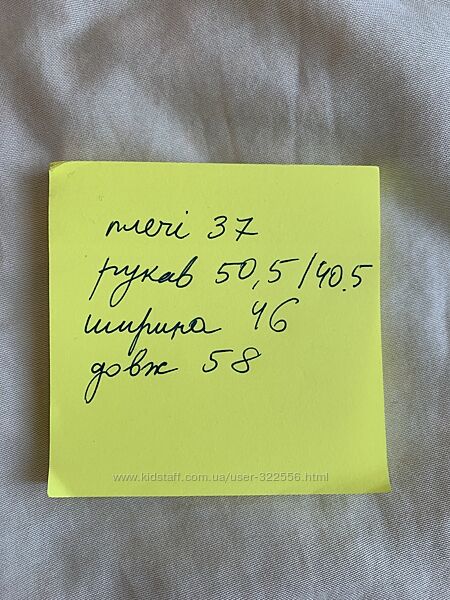 плечі 37
рукав 50,5/40.5
ширина 46
довж 58
www.kidstaff.com.ua/user-322556.html